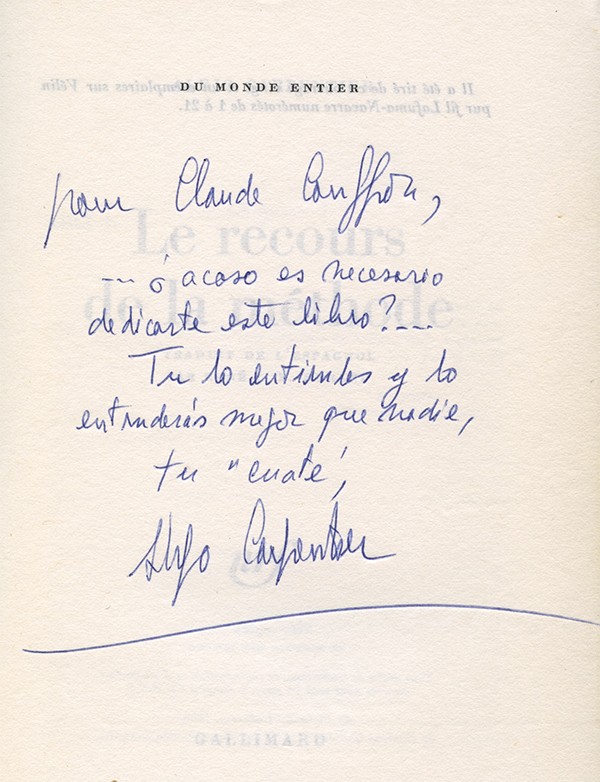 DU MONDE ENTIER
Il a été tiré de exemplaires sur Vélin
pur fil Lafuma-Navarre numérotés de 1 à 21.
pour Claude Couffon,
Le recours
de la méthode
--- ó acaso es necesario
dedicarte este libro?---
TRADUIT DE L'ESPAGNOL
Tu lo entiendes y lo
entenderás mejor que nadie,
tu "cuate",
Alejo Carpentier
GALLIMARD